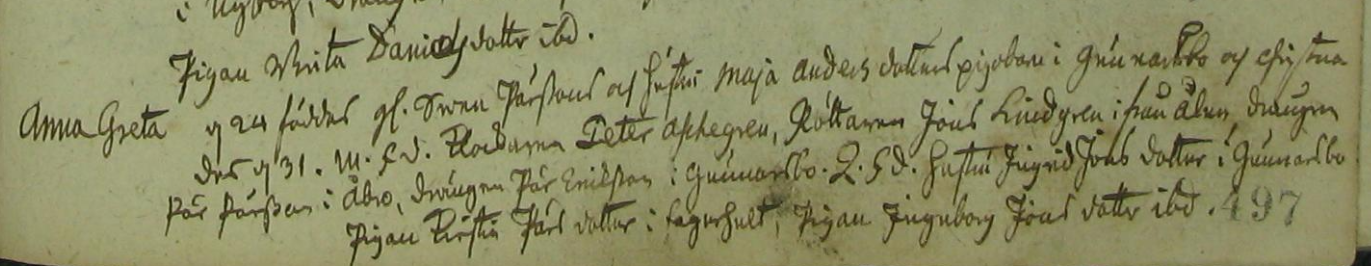 i Nyboh,
Pigan Brita Daniels dotter ibd.
Anna Greta d 24 föddes gl. Swen Pärssons och hustru Maja Anders dotters pigobarn i Gunnarsbo och christna
des d 31. M. S. d. Klockaren Peter Askegren, Rättaren Jöns Lindgren i från drängen
Pär Pärsson i Åbro, drängen Pär Erikson i Gunnarsbo. Q. S. d. hustru Ingrid Jöns dotter i Gunnarsbo
Pigan Kirstin Pärs dotter i Fagerhult, Pigan Ingeborg Jöns dotter ibd. 497